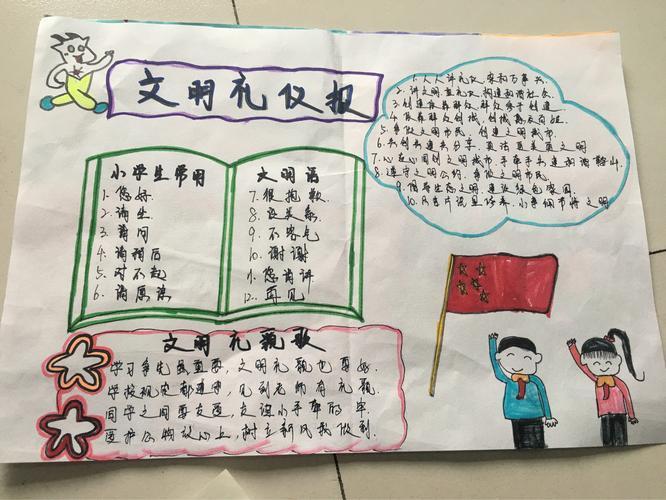 文明礼仪报
小学生常用
1.您好
2.请坐
3.请问
4.请稍后
5.对不起
6.请原谅
文明语
7.很抱歉
8.没关系
9.不客气
10.谢谢
11.您请讲
12.再见
1.人人讲礼仪 家和万事兴.
2.讲文明重礼仪,构建和谐社会.
3.创建依靠群众,群众参于创建.
4.依靠群众创城,创城惠及百姓.
5.争做文明市民,创建文明城市.
6.共创共建共分享,
7.心在心同创文明城市,手牵手共建和谐
8.遵守文明公约,争做文明市民.
9.倡导生态文明,建设绿色家园.
10.只言片语显修养,小事细节将文明
文明礼貌歌
学习争先虽重要,文明礼貌也要好.
学校规定都遵守,见到老师有礼貌.
同学之间要友爱,友谊小手牵的牢.
爱护公物放心上,树立新风我做到.